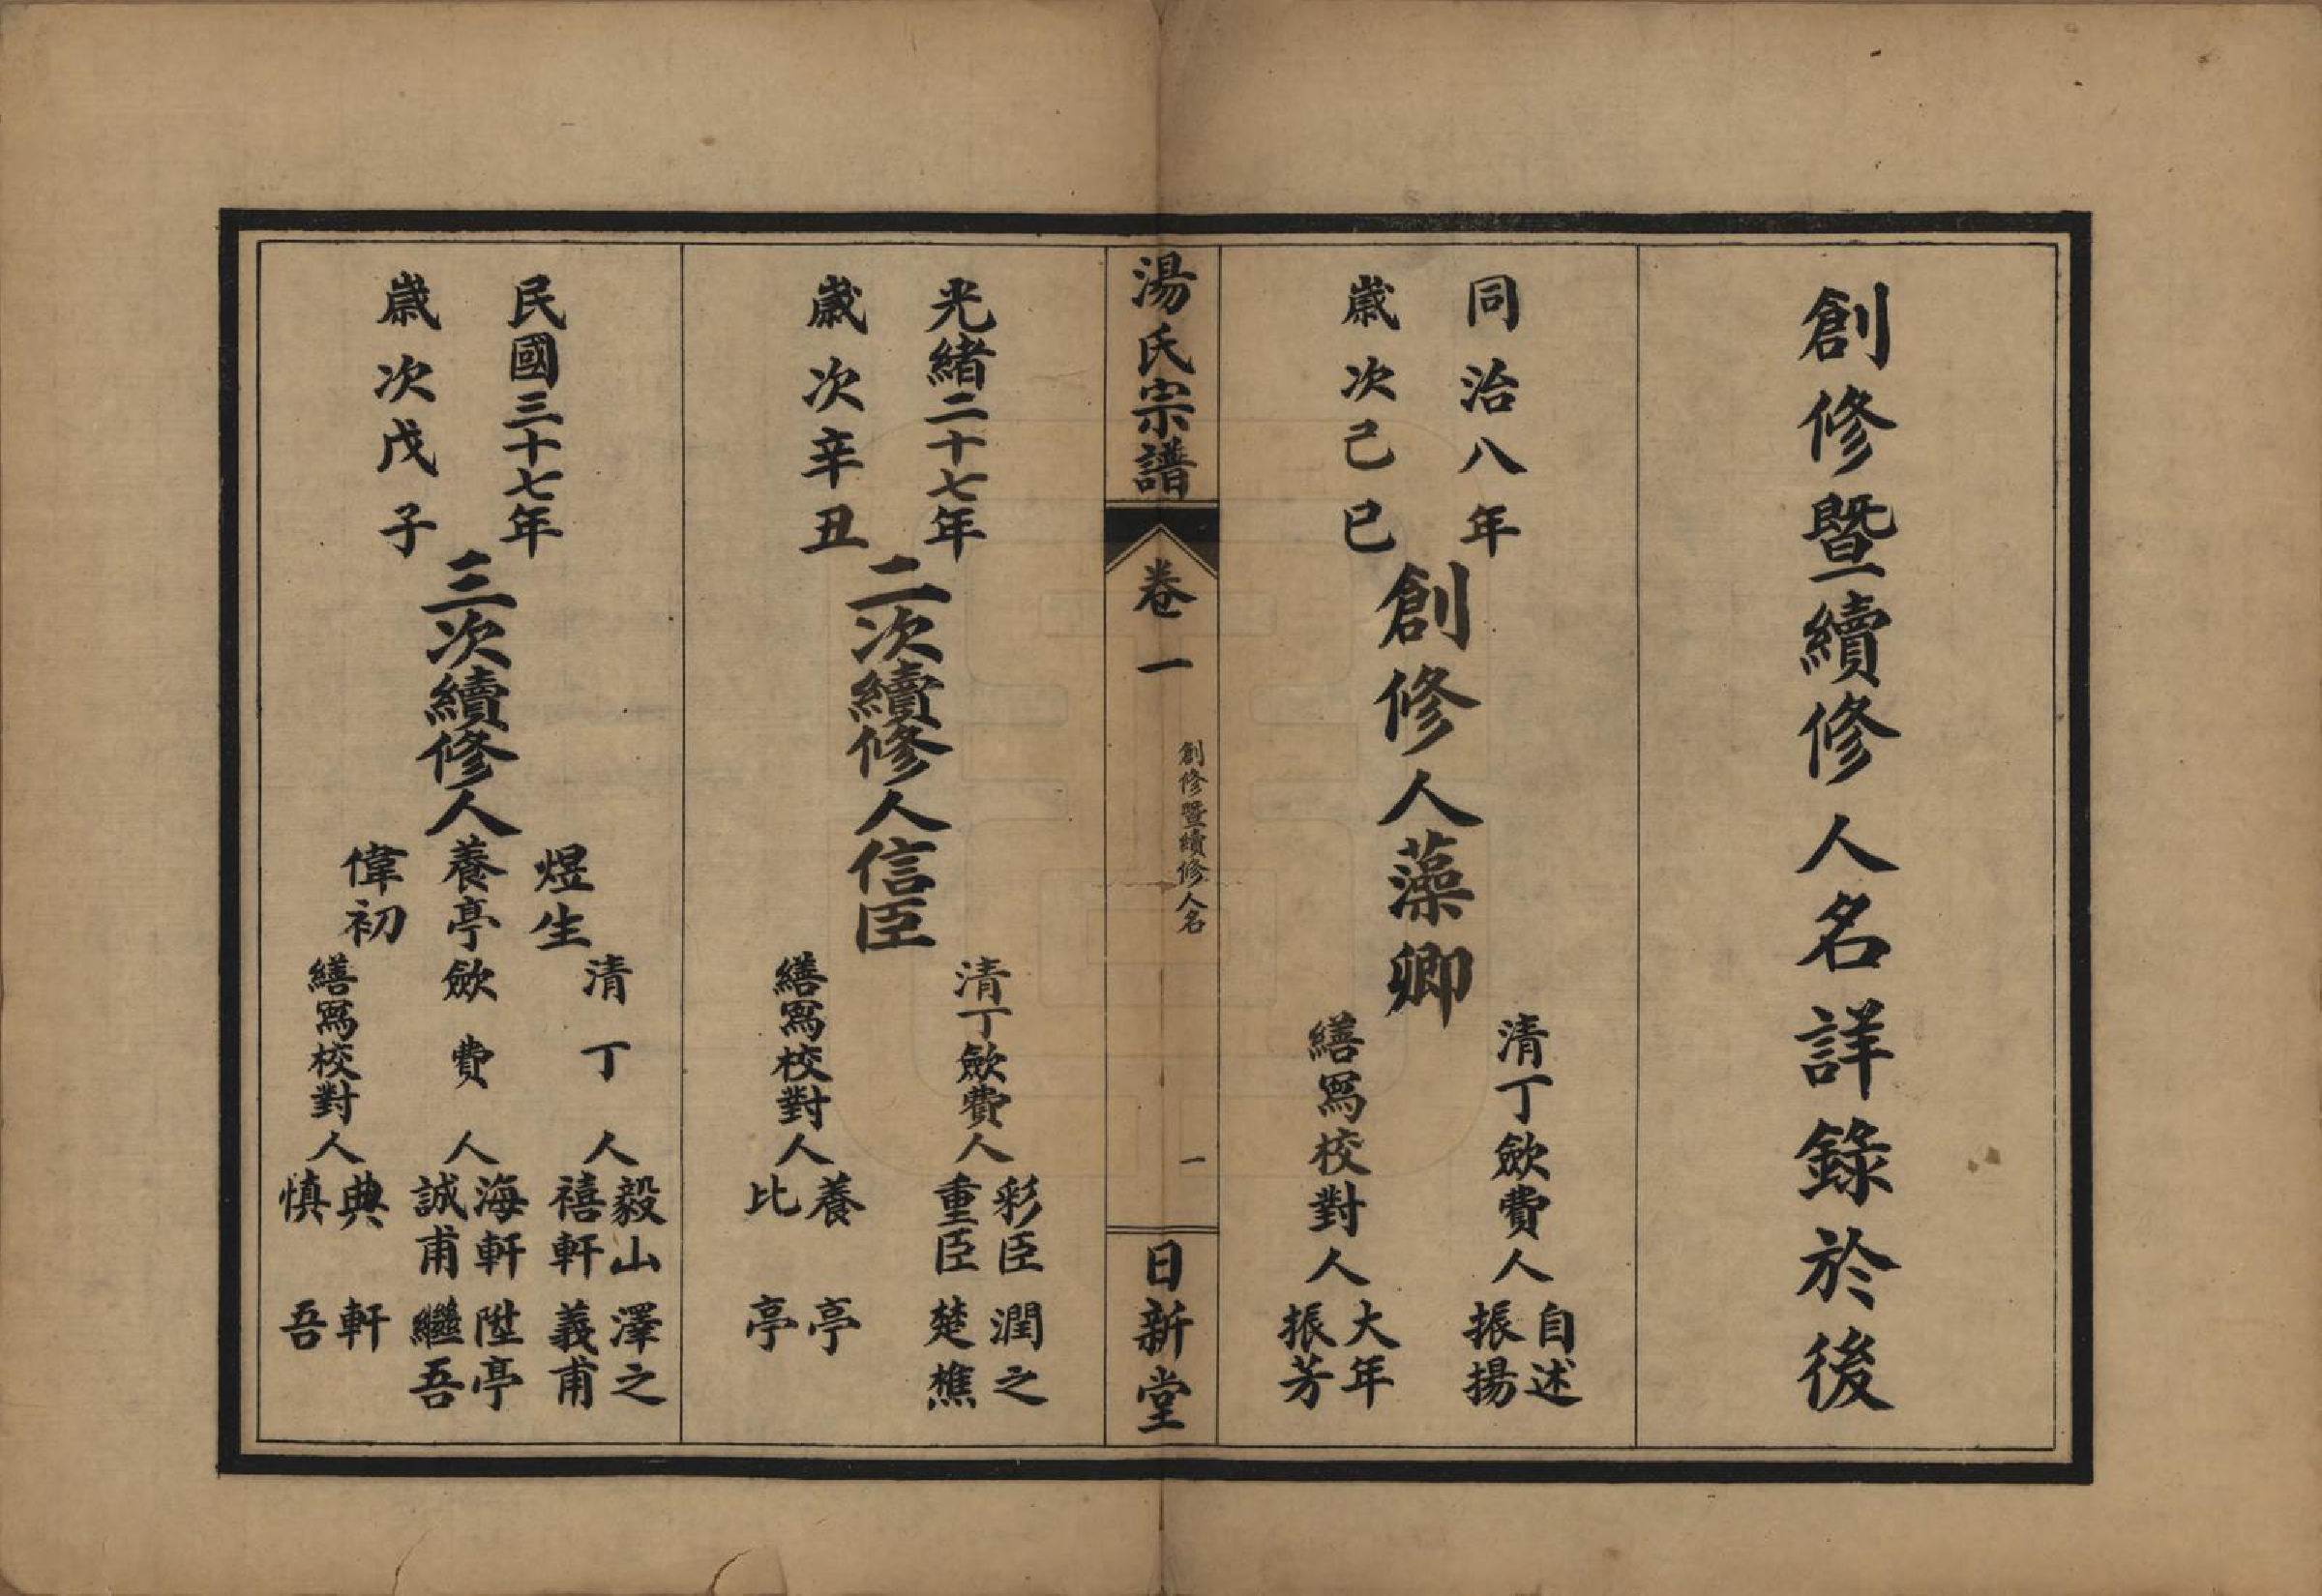 創修暨續修人名詳錄於後
同治八年
歲次己巳
創修人藻卿
清丁歛費人
自述
振揚
繕寫校對人
大年
振芳
湯氏宗譜
卷一
創修暨續修人名
一
日新堂
光緒二十七年
歲次辛丑
二次續修人信臣
清丁歛費人
彩臣 潤之
重臣 楚樵
繕寫校對人
養亭
比亭
民國三十七年
歲次戊子
三次續修人
煜生
養亭
偉初
清丁人
毅山 澤之
禧軒 義甫
歛費人
海軒 陞亭
誠甫 繼吾
繕寫校對人
典軒
慎吾